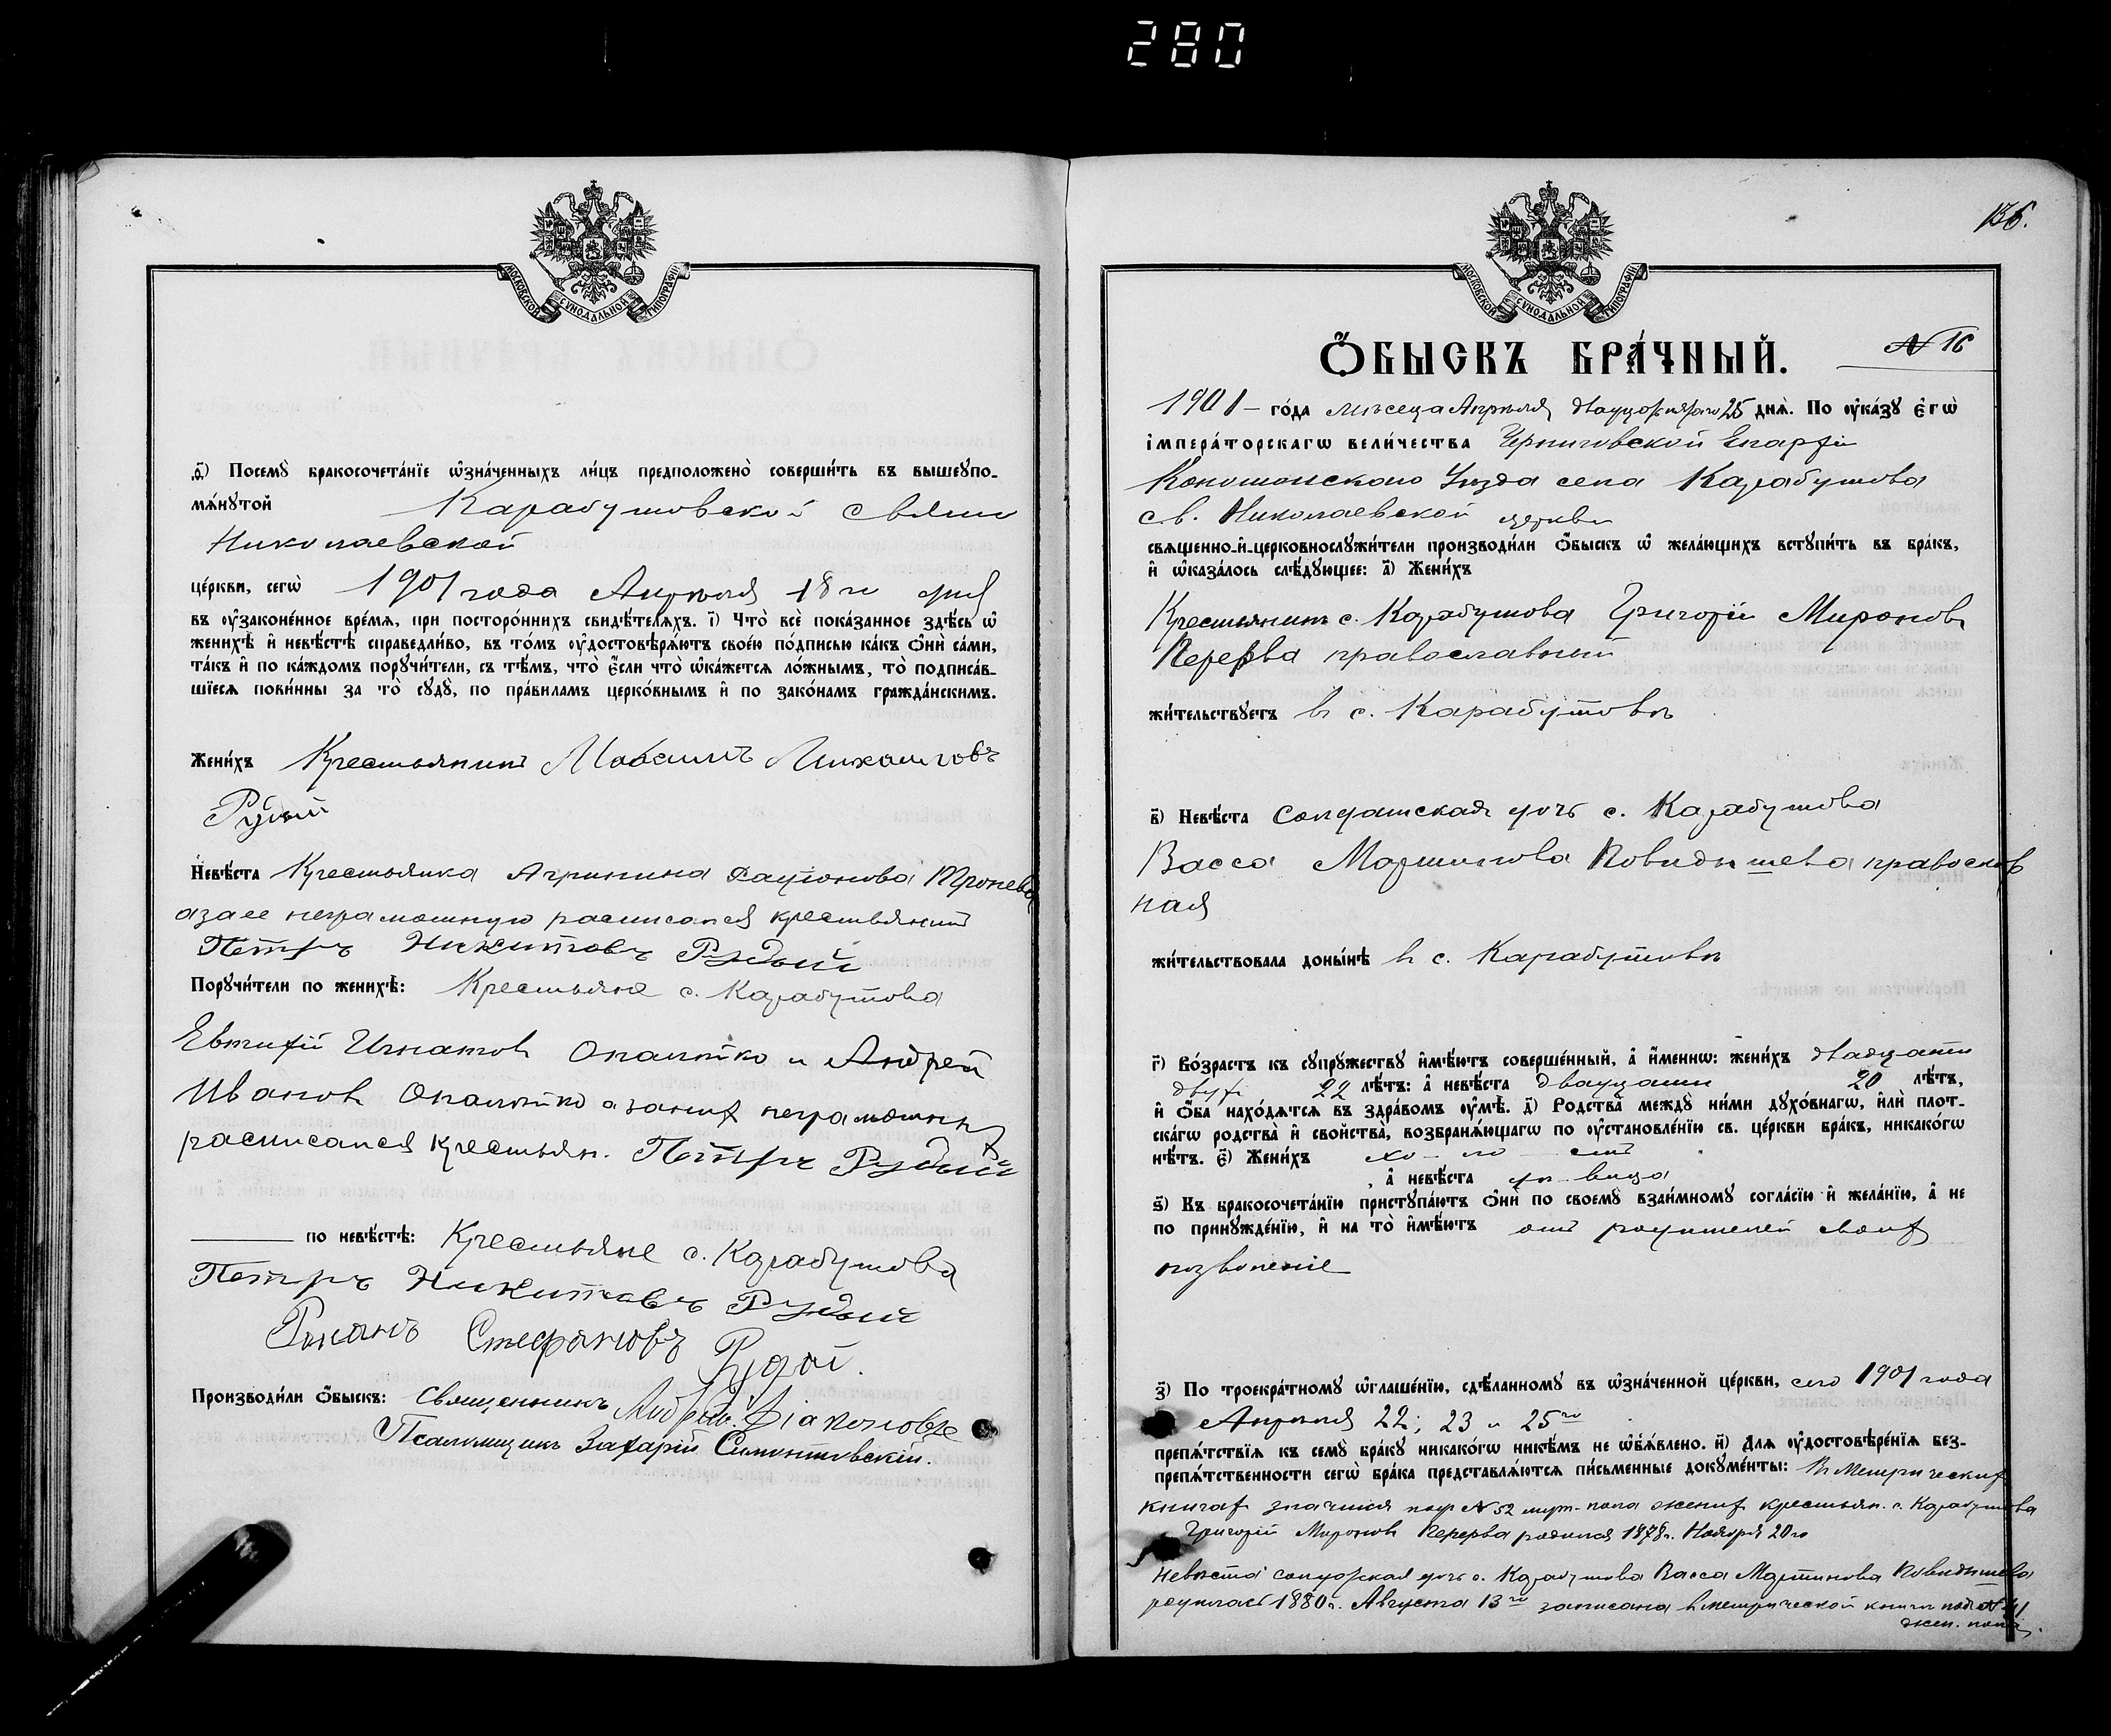 280
МОСКОВСКОЙ СѴНОДАЛЬНОЙ ТИПОГРАФІИ
ѳ҃) Посемꙋ̀ бракосочета́нїе ѡ҆зна́ченныхъ ли́цъ предположено̀ соверши́ть въ вышеꙋпо-
мѧ́нꙋтой Карабутовской Свято
Николаевской
це́ркви, сегѡ̀ 1901 года Апреля 18го дня
въ ᲂу҆зако́ненное вре́мѧ, при посторо́ннихъ свидѣ́телѧхъ. і҃) Что̀ всѐ пока́занное здѣ́сь ѡ҆
женихѣ̀ и҆ невѣ́стѣ справедли́во, въ то́мъ ᲂу҆достовѣрѧ́ютъ свое́ю по́дписью ка́къ ѻ҆нѝ са́ми,
та́къ и҆ по ка́ждомъ порꙋчи́тели, съ тѣ́мъ, что̀ є҆́сли что̀ ѡ҆ка́жетсѧ ло́жнымъ, то̀ подписа́в-
шїесѧ пови́нны за то̀ сꙋдꙋ̀, по пра́виламъ церко́внымъ и҆ по зако́намъ гражда́нскимъ.
Жени́хъ Крестьянинъ Максимъ Михаиловъ
Рудый
Невѣ́ста Крестьянка Агрипина
а за ее неграмотную расписался крестьянинъ
Петръ Никитовъ Рудый
Порꙋчи́тели по женихѣ̀: Крестьяне с. Карабутова
Евтихій Игнатовъ и Андрей
Ивановъ а за них неграмотных
расписался крестьян. Петръ Рудый
по невѣ́стѣ: Крестьяне с. Карабутова
Петръ Никитовъ Рудый
Романъ Стефановъ Рудой.
Производи́ли ѻ҆́быскъ: Священникъ Андрей Діаконовъ
Псаломщикъ Захарій Симонтовскій.
МОСКОВСКОЙ СѴНОДАЛЬНОЙ ТИПОГРАФІИ
136.
Ѻ҆́БЫСКЪ БРА́ЧНЫЙ.
№ 16
1901 – го́да месеца Апреля двадцатаго 25 днѧ̀. По ᲂу҆ка́зꙋ є҆гѡ̀
і҆мпера́торскагѡ вели́чества Черниговской Епархіи
Конотопскаго Уезда села Карабутова
св. Николаевской церкви
свѧщенно-и҆-церковнослꙋжи́тели производи́ли ѻ҆́быскъ ѡ҆ жела́ющихъ встꙋпи́ть въ бра́къ,
и҆ ѡ҆каза́лось слѣ́дꙋющее: а҃) Жени́хъ
Крестьянинъ с. Карабутова Григорій Мироновъ
Перерва православный
жи́тельствꙋетъ въ с. Карабутове
в҃) Невѣ́ста солдатская дочь с. Карабутова
Васса Мартинова православ
ная
жи́тельствовала доны́нѣ въ с. Карабутове
г҃) Во́зрастъ къ сꙋпрꙋ́жествꙋ и҆мѣ́ютъ соверше́нный, а҆ и҆́менно: жени́хъ двадцати
двух 22 лѣ́тъ: а҆ невѣ́ста двадцати 20 лѣ́тъ,
и҆ ѻ҆́ба нахо́дѧтсѧ въ здра́вомъ ᲂу҆мѣ̀. д҃) Родства̀ междꙋ̀ ни́ми дꙋхо́внагѡ, и҆лѝ плот-
ска́гѡ родства̀ и҆ свойства̀, возбранѧ́ющагѡ по ᲂу҆становле́нїю св. це́ркви бра́къ, никако́гѡ
нѣ́тъ. є҃) Жени́хъ хо–ло–стъ
, а҆ невѣ́ста де–вица
ѕ҃) Къ бракосочета́нїю пристꙋпа́ютъ ѻ҆нѝ по своемꙋ̀ взаи́мномꙋ согла́сїю и҆ жела́нїю, а҆ не
по принꙋжде́нїю, и҆ на то̀ и҆мѣ́ютъ отъ родителей своих
позволеніе
з҃) По троекра́тномꙋ ѡ҆глаше́нїю, сдѣ́ланномꙋ въ ѡ҆зна́ченной це́ркви, сего 1901 года
Апреля 22; 23 и 25го
препѧ́тствїѧ къ семꙋ̀ бра́кꙋ никако́гѡ никѣ́мъ не ѡ҆б̾ѧ́влено. и҃) Длѧ ᲂу҆достовѣре́нїѧ без-
препѧ́тственности сегѡ̀ бра́ка представлѧ́ютсѧ пи́сьменные докꙋме́нты: въ Метрических
книгах значится под № 52 муж. пола жених крестьян. с. Карабутова
Григорій Мироновъ Перерва родился 1878г. Ноября 20го
Невеста солдатская дочь с. Карабутова Васса Мартинова
родилась 1880г. Августа 13го записана въ метрической книге под № 41
жен. пола.